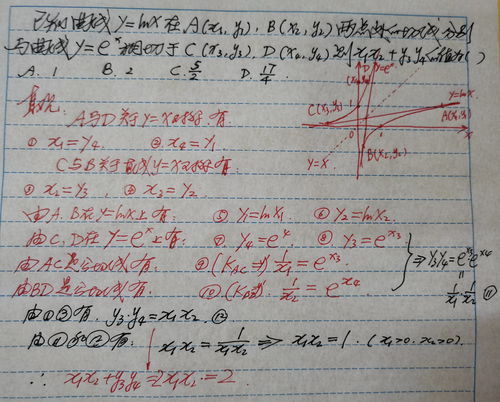 已知曲线 y=lnx 在 A(x₁,y₁), B(x₂,y₂) 两点处的切线分别
与曲线 y=eˣ 相切于 C(x₃,y₃), D(x₄,y₄) 则 x₁x₂+y₃y₄的值为( )
A. 1 B. 2 C. 5/2 D. 17/4
A与D关于y=x对称 有.
① x₁=y₄. ② x₄=y₁
C与B关于直线y=x对称有.
③ x₂=y₃ ④ x₃=y₂
由A.B在y=lnx上有: ⑤ y₁=lnx₁ ⑥ y₂=lnx₂.
由C.D在y=eˣ上有: ⑦ y₄=eˣ ⑧ y₃=eˣ³
由AC是公切线有. ⑨ (K_AC=) 1/x₁=eˣ³
由BD是公切线有. ⑩ (K_BD=) 1/x₂=eˣ⁴
⇒ y₃y₄=eˣ³eˣ⁴ = 1/x₁·1/x₂ ⑪
由①③有. y₃·y₄=x₁x₂ ⑫
由⑪和⑫有: x₁x₂=1/(x₁x₂) ⇒ x₁x₂=1. (x₁>0. x₂>0).
∴ x₁x₂+y₃y₄=2x₁x₂=2.
(x₄,y₄)
y=eˣ
C(x₃,y₃)
y=lnx
A(x₁,y₁)
B(x₂,y₂)
y=x
0
x